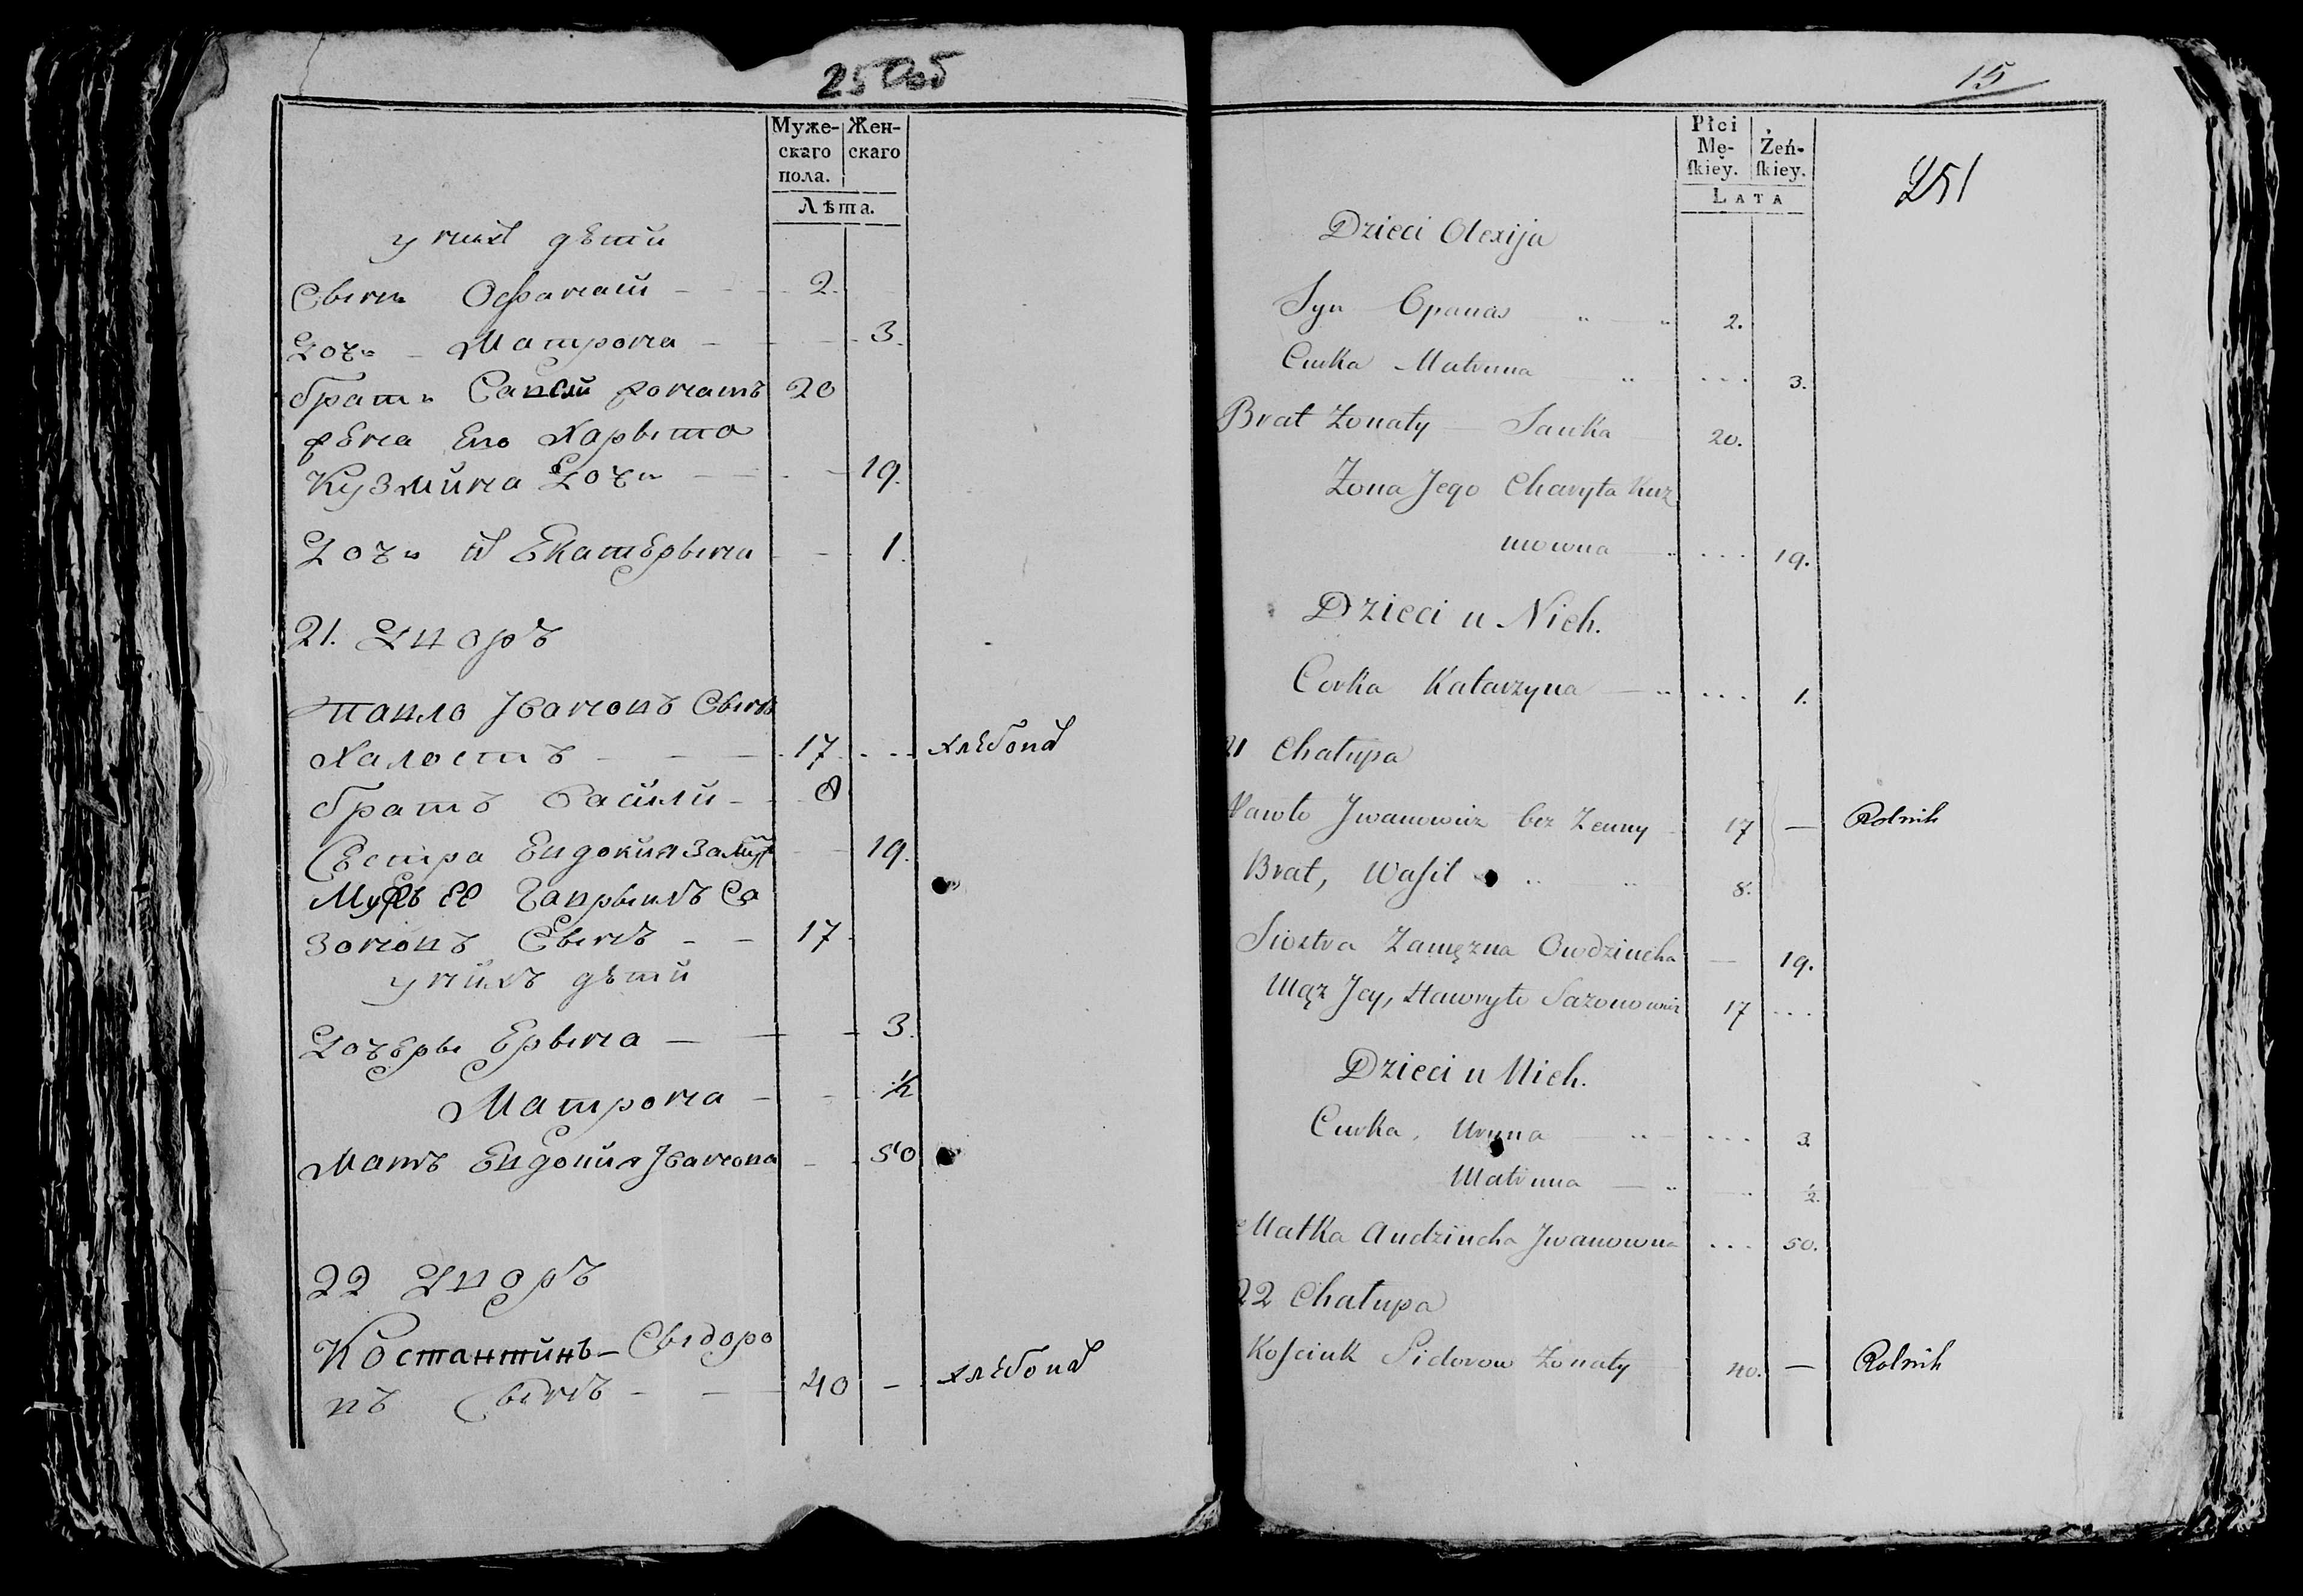 25 об
Муже- Жен-
скаго скаго
пола.
Лѣта.
у нихъ дѣти
Сынъ Офанасий - - - 2.
Дочь - Матрона - - - 3.
братъ Савка жонатъ 20
жена Его Харыта
Кузмина Дочь - - - 19.
Дочь Екатерына - - 1.
21. Дворъ
Павло Ивановъ Сынъ
Халостъ - - - 17 - - - хлѣбопа
братъ Васили - - 8
Сестра Евдокия замуж - - 19.
Мужъ ее Гаврылъ Са
зоновъ Сынъ - - 17
у нихъ дѣти
Дочеры Ерына - - - 3.
Матрона - - 1/2
Матъ Евдокия Иванова - - 50
22 Дворъ
Костантинъ - Сыдоро
въ Сынъ - - - 40 - хлѣбопа
15
251
Płci
Mę- Żeń-
ſkiey. ſkiey.
LATA
Dzieci Olexija
Syn Opanas - " - " 2.
Curka Matruna " ... 3.
Brat Żonaty - Sauka - 20.
Żona Jego Charyta Kuz
mowna - " ... 19.
Dzieci u Nich.
Corka Katarzyna - " ... 1.
21 Chałupa
Pawło Jwanowicz bez Zenny - 17 - Rolnik
Brat, Waſil " - " 8.
Siostra Zamężna Owdziucha - 19.
Mąż Jey, Hawryło Sazonowicz 17 ...
Dzieci u Nich.
Curka, Uryna - " - ... 3.
Matruna - " - " 1/2.
Matka Audziucha Jwanowna ... 50.
22 Chałupa
Koſciuk Sidorow Żonaty 40. - Rolnik